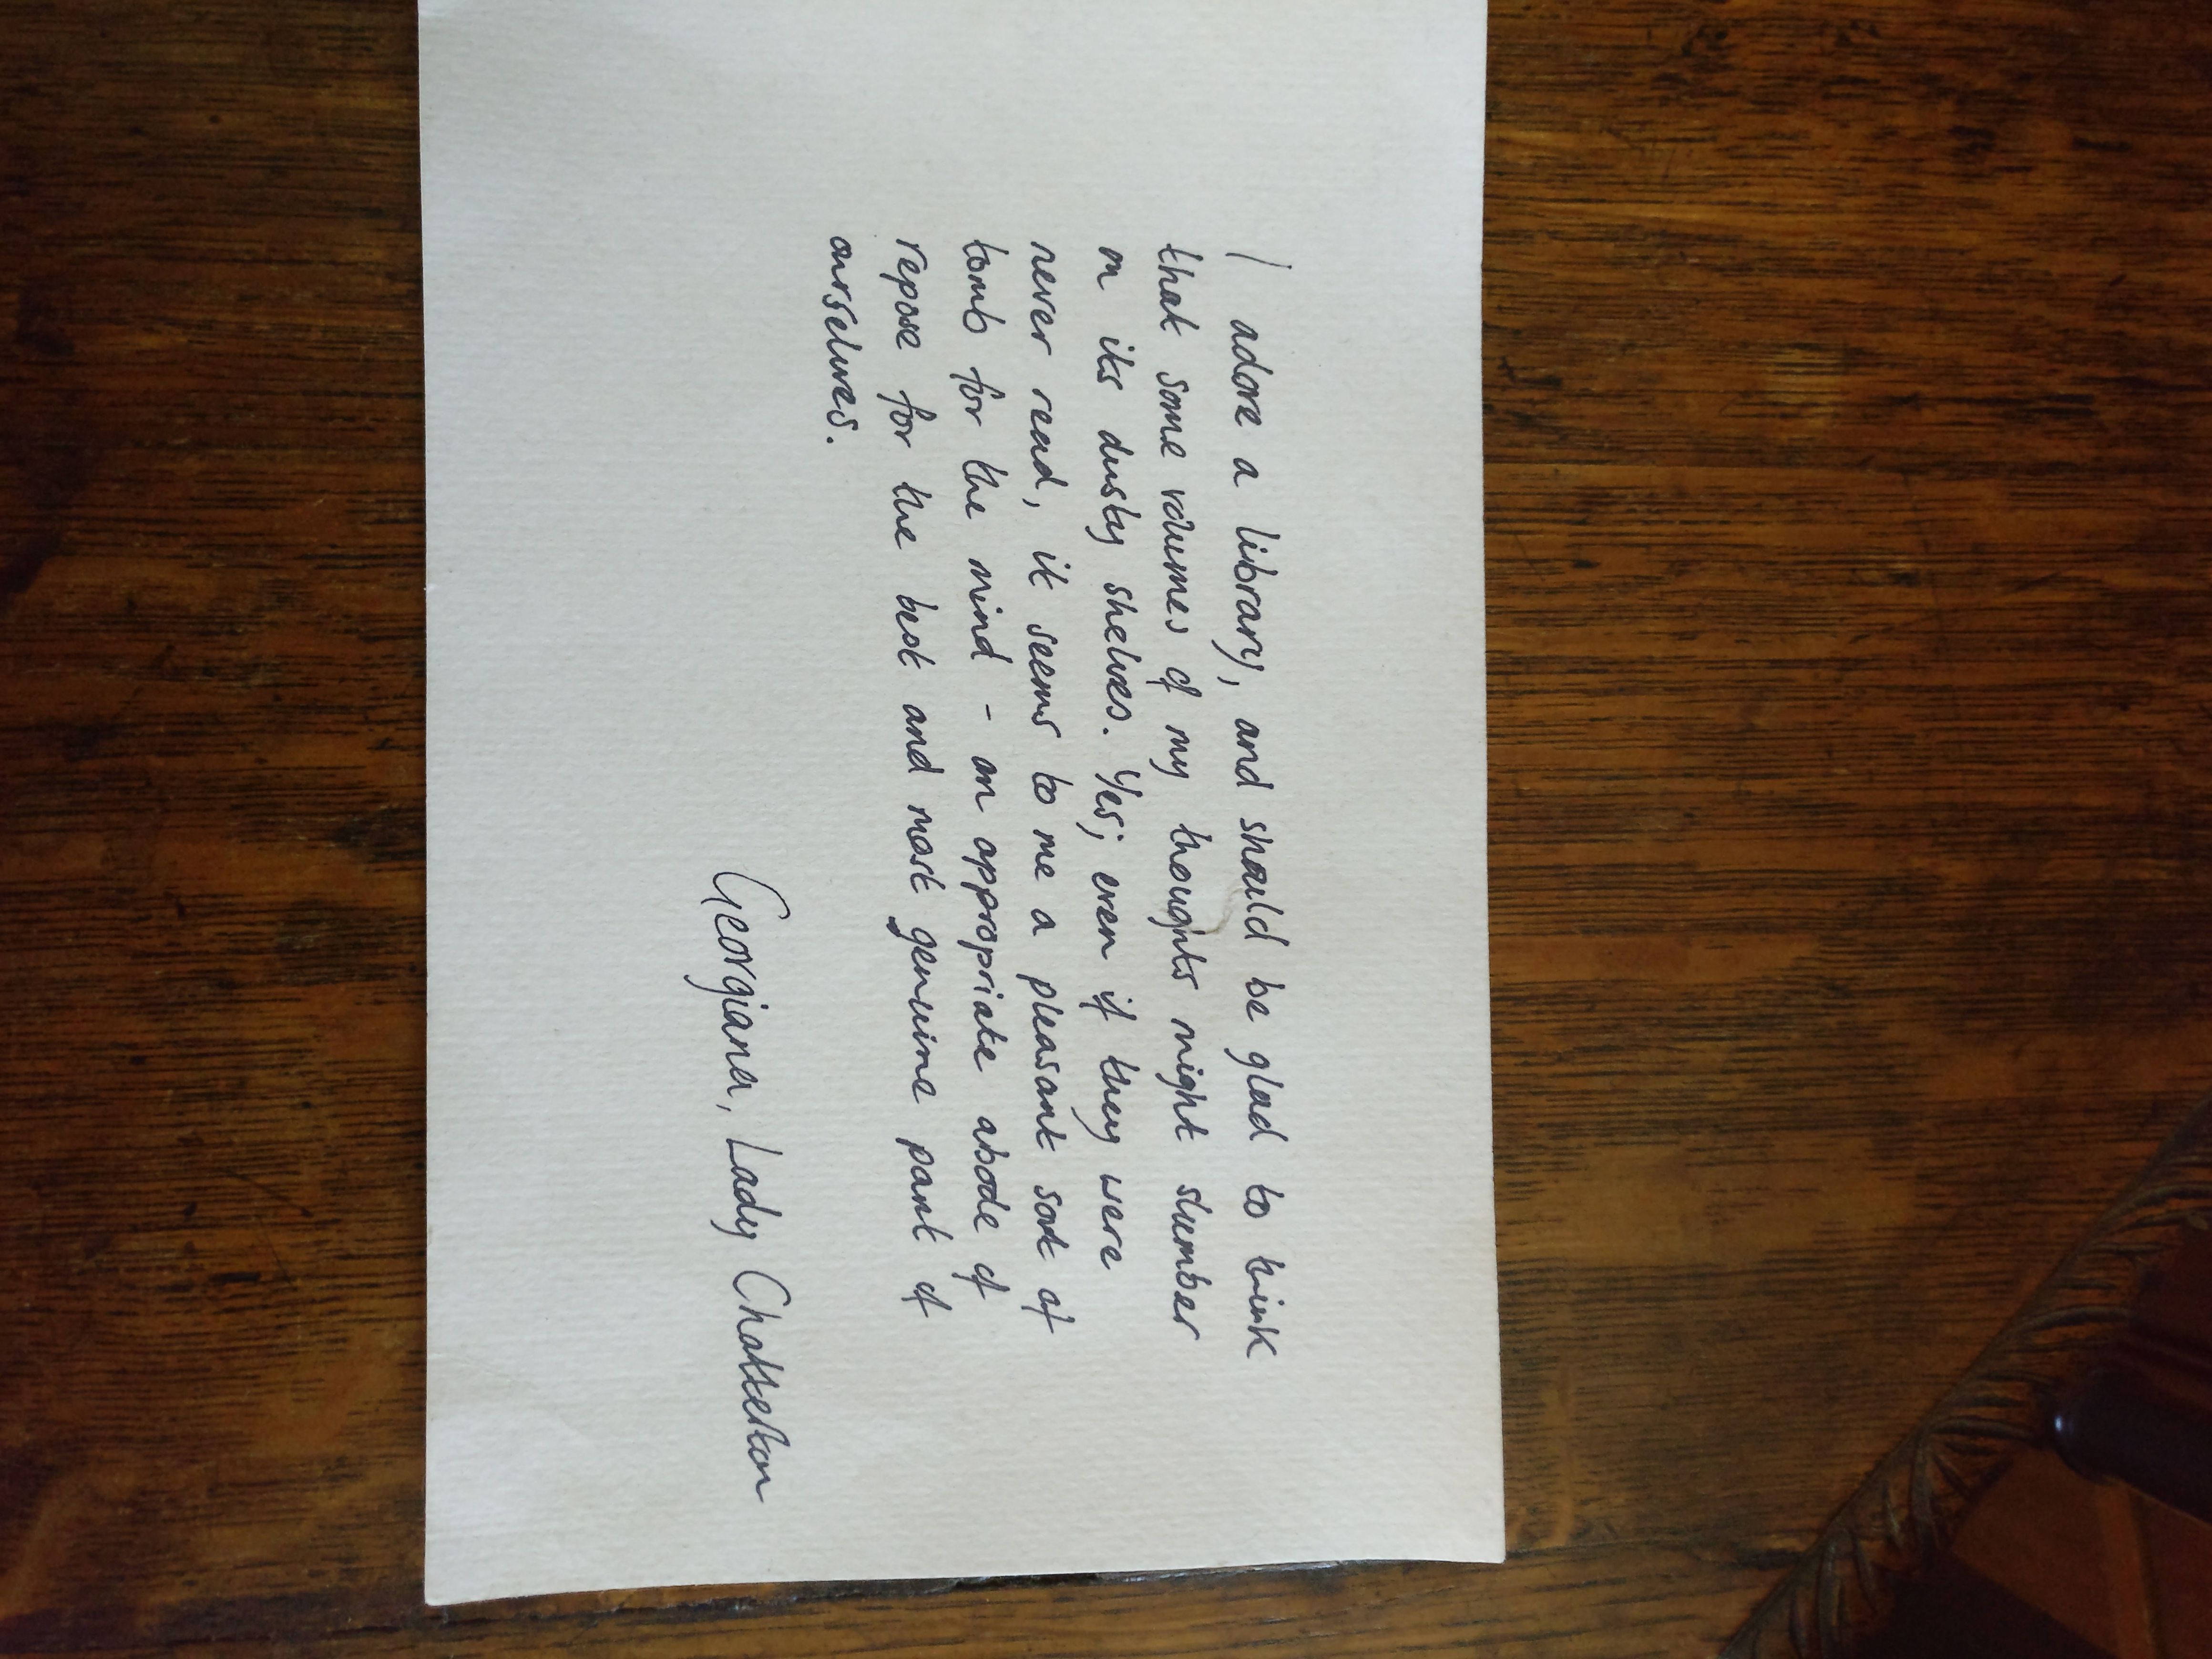 I adore a library, and should be glad to think
that some volumes of my thoughts might slumber
on its dusty shelves. Yes; even if they were
never read, it seems to me a pleasant sort of
tomb for the mind - an appropriate abode of
repose for the best and most genuine part of
ourselves.
Georgiana, Lady Chatterton